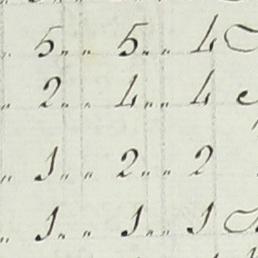 „ 5 „ „ 5 „ „ 4
„ 2 „ „ 4 „ „ 4
„ 1 „ „ 2 „ „ 2
„ 1 „ „ 1 „ „ 1